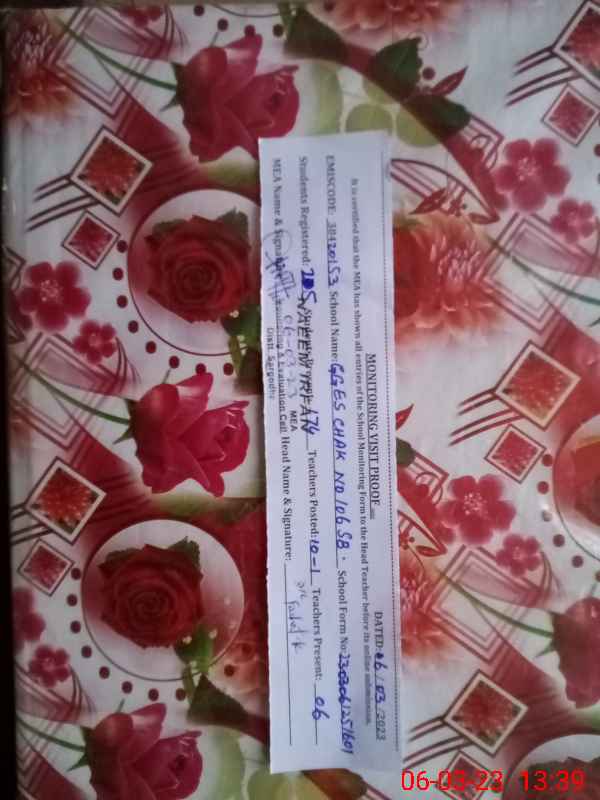 MONITORING VISIT PROOF
DATED: 06/03/2023
It is certified that the MEA has shown all entries of the School Monitoring Form to the Head Teacher before its online submission.
EMISCODE: 38420153 School Name: GGES CHAK NO 106 SB. School Form No: 2303061251601
Students Registered: 205 Students Present: 174 Teachers Posted: 10-1 Teachers Present: 06
MEA Name & Signature: Head Name & Signature:
NAEEM IRFAN
MEA
Monitoring & Evaluation Cell
Distt. Sargodha
06-03-23
06-03-23 13:39